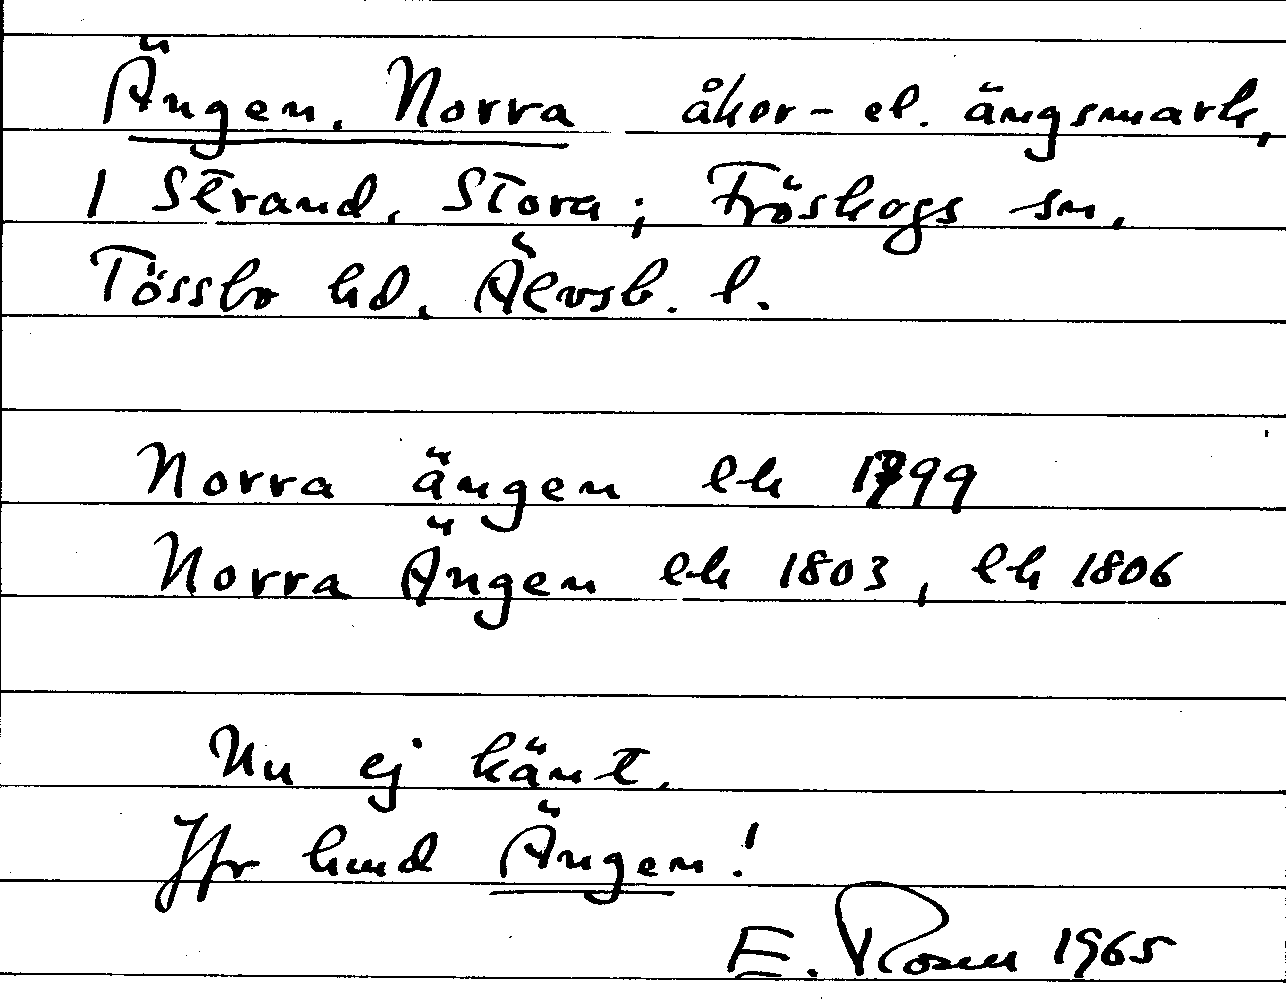 Ängen, Norra åker- el. ängsmark,
i Strand, Stora; Fröskogs sn,
Tössbo hd, Älvsb. l.
Norra ängen lh 1799
Norra Ängen lh 1803, lh 1806
Nu ej känt.
Jfr hmd Ängen!
E. Rosen 1965